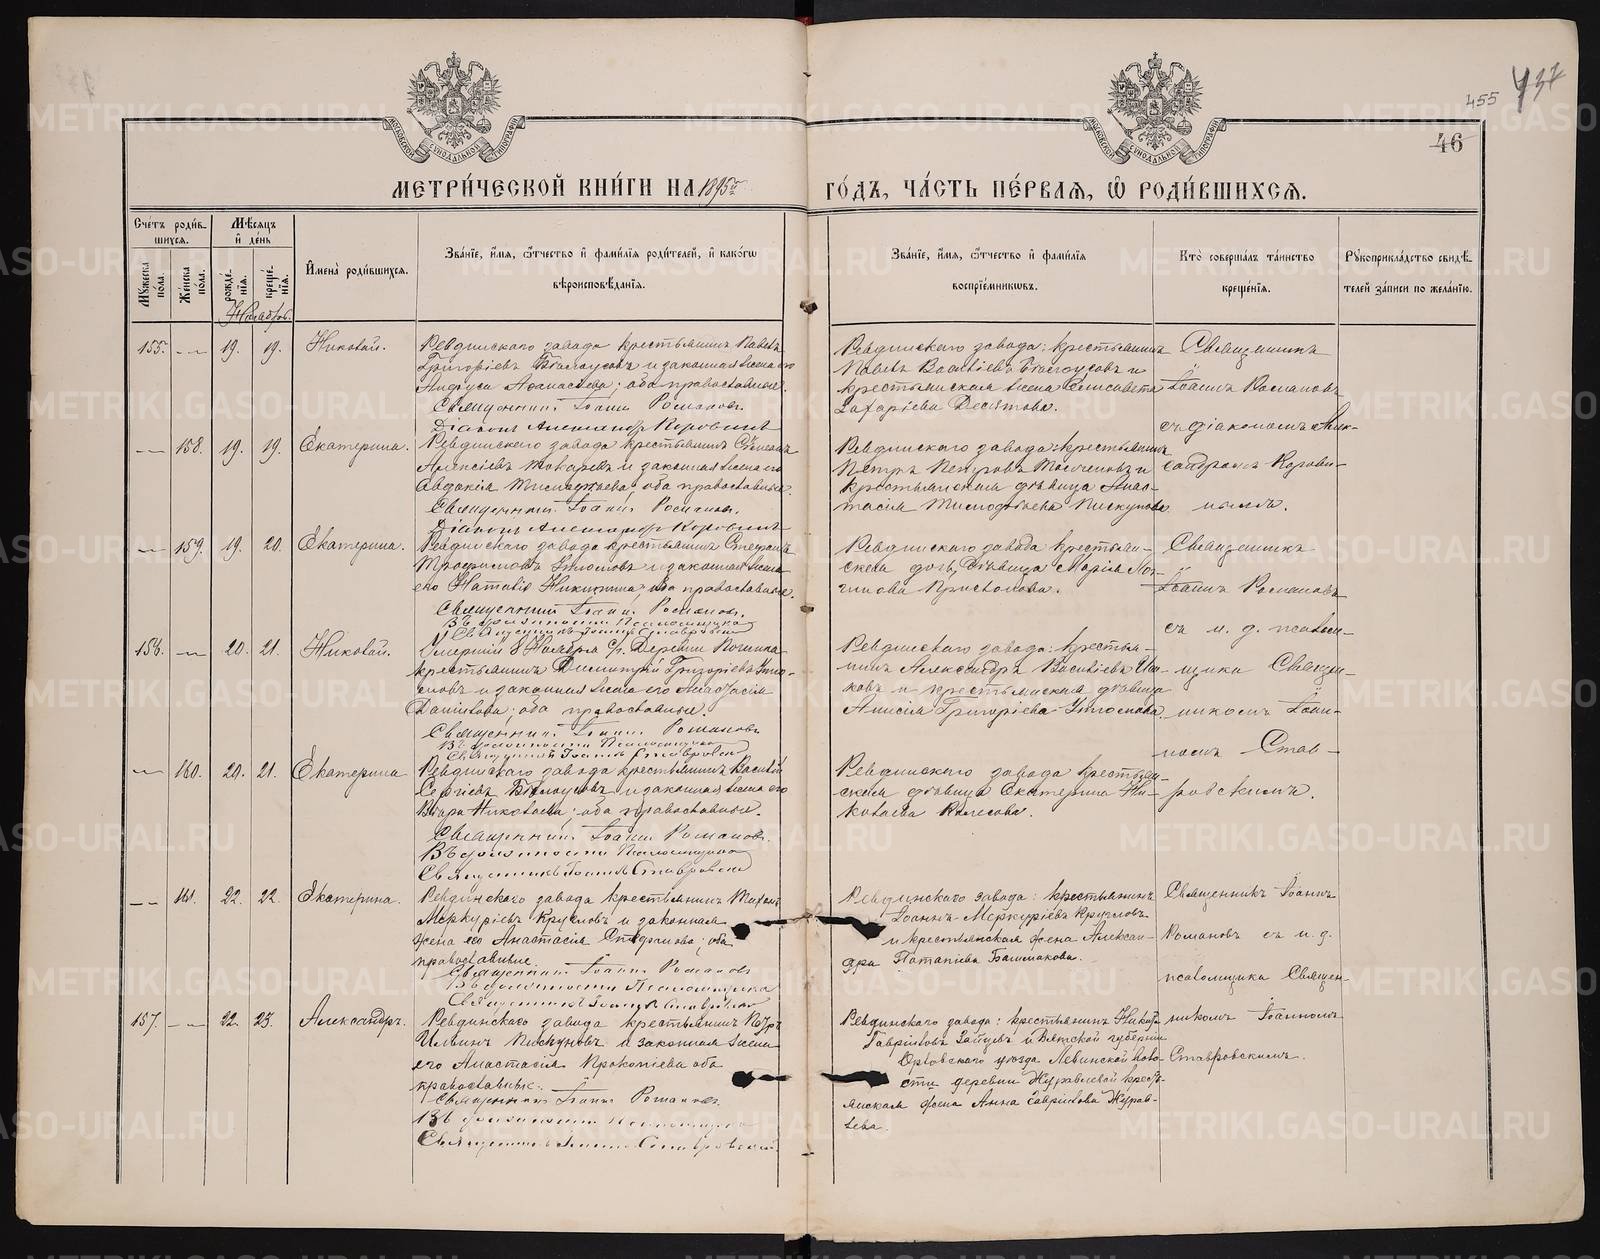 455 437
46
МОСКОВСКОЙ СѴНОДАЛЬНОЙ ТИПОГРАФІИ
МОСКОВСКОЙ СѴНОДАЛЬНОЙ ТИПОГРАФІИ
МЕТРИ́ЧЕСКОЙ КНИ́ГИ НА 1895 ГО́ДЪ, ЧА́СТЬ ПЕ́РВАЯ, Ѡ РОДИ́ВШИХСЯ.
Сче́тъ роди́в-
шихся.
Мѣ́сяцъ
и҆ де́нь
Му́жеска
по́ла.
Же́нска
по́ла.
рожде́-
нїя.
креще́-
нїя.
И҆мена̀ роди́вшихся.
Зва́нїе, и҆́мя, ѻ҆́тчество и҆ фами́лїя роди́телей, и҆ како́гѡ
вѣроисповѣ́данїя.
Зва́нїе, и҆́мя, ѻ҆́тчество и҆ фами́лїя
воспрїе́мникѡвъ.
Кто̀ соверша́лъ та́инство
креще́нїя.
Рꙋкоприкла́дство свидѣ́-
телей за́писи по жела́нїю.
Ноябрь.
155. 19. 19. Николай.
Ревдинскаго завода крестьянинъ Павелъ
Григорьевъ Бѣлоусовъ и законная жена его
Аѳанасьева; оба православные.
Священникъ Іоаннъ Романовъ.
Діаконъ Александръ Коровинъ
Ревдинскаго завода: крестьянинъ
Павелъ Васильевъ Бѣлоусовъ и
крестьянская жена Елисавета
Захарьева Десятова.
Священникъ
Іоаннъ Романовъ
съ діакономъ Алек-
сандромъ Корови-
нымъ.
158. 19. 19. Екатерина.
Ревдинскаго завода крестьянинъ
Алексѣевъ Токаревъ и законная жена его
Евдокія Тимофеева; оба православные.
Священникъ Іоаннъ Романовъ.
Діаконъ Александръ Коровинъ
Ревдинскаго завода: крестьянинъ
Петръ Петровъ и
крестьянская дѣвица Анас-
тасія Тимофѣева Пискунова
159. 19. 20. Екатерина.
Ревдинскаго завода крестьянинъ Стефанъ
Трофимовъ и законная жена
его Наталія Никитина; оба православные.
Священникъ Іоаннъ Романовъ.
Въ должности Псаломщика
Священникъ Іоаннъ Ставровскій
Ревдинскаго завода крестьян-
ская дочь, дѣвица Марія Лон-
гинова
Священникъ
Іоаннъ Романовъ
съ и. д. псалом-
щика Священ-
никомъ Іоан-
номъ Став-
ровскимъ.
156. 20. 21. Николай.
Умершій 8 Ноября с/г. Деревни
крестьянинъ Димитрій Григорьевъ
и законная жена его
Данилова; оба православные.
Священникъ Іоаннъ Романовъ
Въ должности Псаломщика
Священникъ Іоаннъ Ставровскій
Ревдинскаго завода: крестья-
нинъ Александръ Васильевъ
и крестьянская дѣвица
Анисія Григорьева
160. 20. 21. Екатерина
Ревдинскаго завода крестьянинъ Василій
Сергѣевъ Бѣлоусовъ и законная жена его
Вѣра Николаева; оба православные.
Священникъ Іоаннъ Романовъ.
Въ должности Псаломщика
Священникъ Іоаннъ Ставровскій
Ревдинскаго завода крестьян-
ская дѣвица Екатерина Ни-
колаева Колесова.
161. 22. 22. Екатерина.
Ревдинскаго завода крестьянинъ Тихонъ
Меркурьевъ Кругловъ и законная
жена его Анастасія Стефанова; оба
православные.
Священникъ Іоаннъ Романовъ
Въ должности Псаломщика
Священникъ Іоаннъ Ставровскій
Ревдинскаго завода: крестьянинъ
Іоаннъ Меркурьевъ Кругловъ
и крестьянская жена Алексан-
дра Потапіева Башмакова.
Священникъ Іоаннъ
Романовъ съ и. д.
псаломщика Священ-
никомъ Іоанномъ
Ставровскимъ.
157. 22. 23. Александръ.
Ревдинскаго завода крестьянинъ Петръ
Ильинъ Пискуновъ и законная жена
его Анастасія Прокопіева оба
православные.
Священникъ Іоаннъ Романовъ.
Въ должности Псаломщика
Священникъ Іоаннъ Ставровскій
Ревдинскаго завода: крестьянинъ
Гавріиловъ Зайцевъ и Вятской губерніи
Орловскаго уѣзда Левинской воло-
сти деревни Журавлевой кресть-
янская жена Анна Гавріилова Журав-
лева.
METRIKI.GASO-URAL.RU